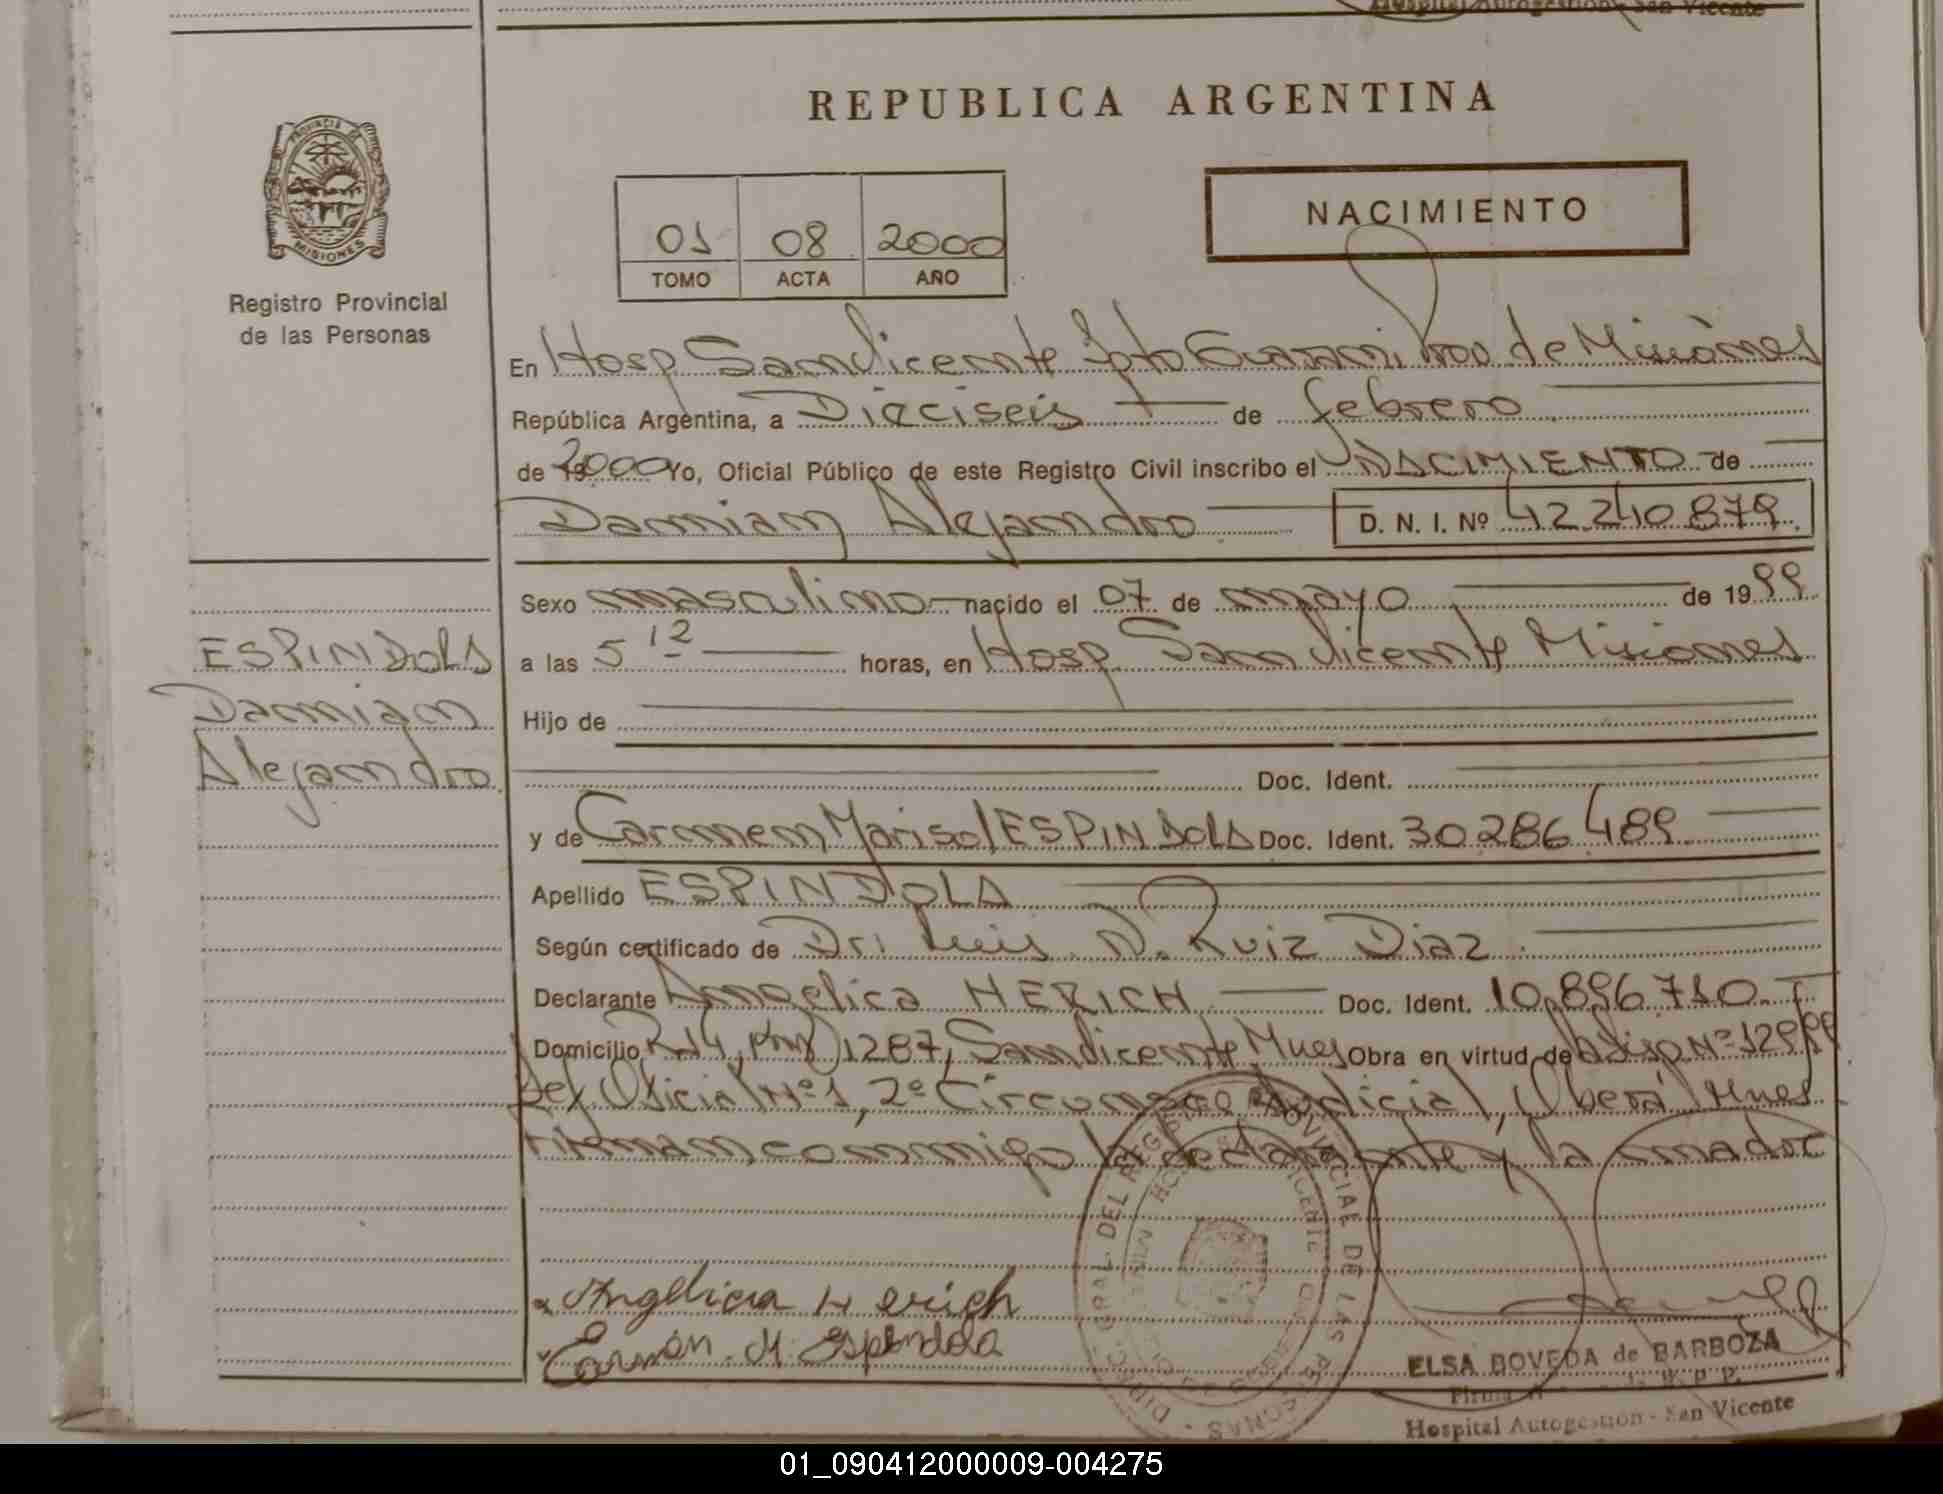 Hospital Autogestión - San Vicente
PROVINCIA DE
MISIONES
Registro Provincial
de las Personas
REPUBLICA ARGENTINA
01 08 2000
TOMO ACTA AÑO
NACIMIENTO
En Hosp San Vicente Dpto Guaraní, Prov. de Misiones
República Argentina, a Dieciseis de febrero
de 2000 Yo, Oficial Público de este Registro Civil inscribo el NACIMIENTO de
Damian Alejandro D. N. I. Nº 42.240.879
Sexo masculino nacido el 07 de mayo de 1999
a las 5 12 horas, en Hosp San Vicente Misiones
Hijo de
Doc. Ident.
y de Carmen Marisol ESPINDOLA Doc. Ident. 30.286.489
Apellido ESPINDOLA
Según certificado de Dr. Luis N. Ruiz Diaz
Declarante Angelica HERICH Doc. Ident. 10.896.710
Domicilio R 14, km 1287, San Vicente Mnes Obra en virtud de Disp Nº
Def Oficial Nº 1, 2º Circunsc Judicial, Oberá Mnes
firman conmigo la declarante y la madre
ESPINDOLA
Damian
Alejandro
Angelica Herich
Carmen M. Espindola
DEL REGISTRO PROVINCIAL DE LAS PERSONAS
ELSA BOVEDA de BARBOZA
Firma
Hospital Autogestión - San Vicente
01_090412000009-004275